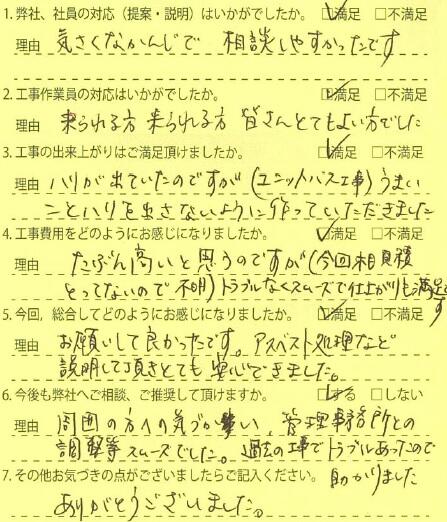 1.弊社、社員の対応（提案・説明）はいかがでしたか。 ☑満足 □不満足
理由 気さくなかんじで 相談しやすかったです
2.工事作業員の対応はいかがでしたか。 ☑満足 □不満足
理由 来られる方 来られる方 皆さんとてもよい方でした
3.工事の出来上がりはご満足頂けましたか。 ☑満足 □不満足
理由 ハリが出ていたのですが（ユニットバス工事）うまい
ことハリを出さないように作っていただきました
4.工事費用をどのようにお感じになりましたか。 ☑満足 □不満足
理由 たぶん高いと思うのですが（今回相見積
とってないので不明）トラブルなくスムーズで仕上がりも満足です
5.今回，総合してどのようにお感じになりましたか。 ☑満足 □不満足
理由 お願いして良かったです。アスベスト処理など
説明して頂きとても安心できました。
6.今後も弊社へご相談、ご推奨して頂けますか。 ☑する □しない
理由 周囲の方への気づかい、管理事務所との
調整等スムーズでした。過去の工事でトラブルあったので
7.その他お気づきの点がございましたらご記入ください。 助かりました
ありがとうございました。